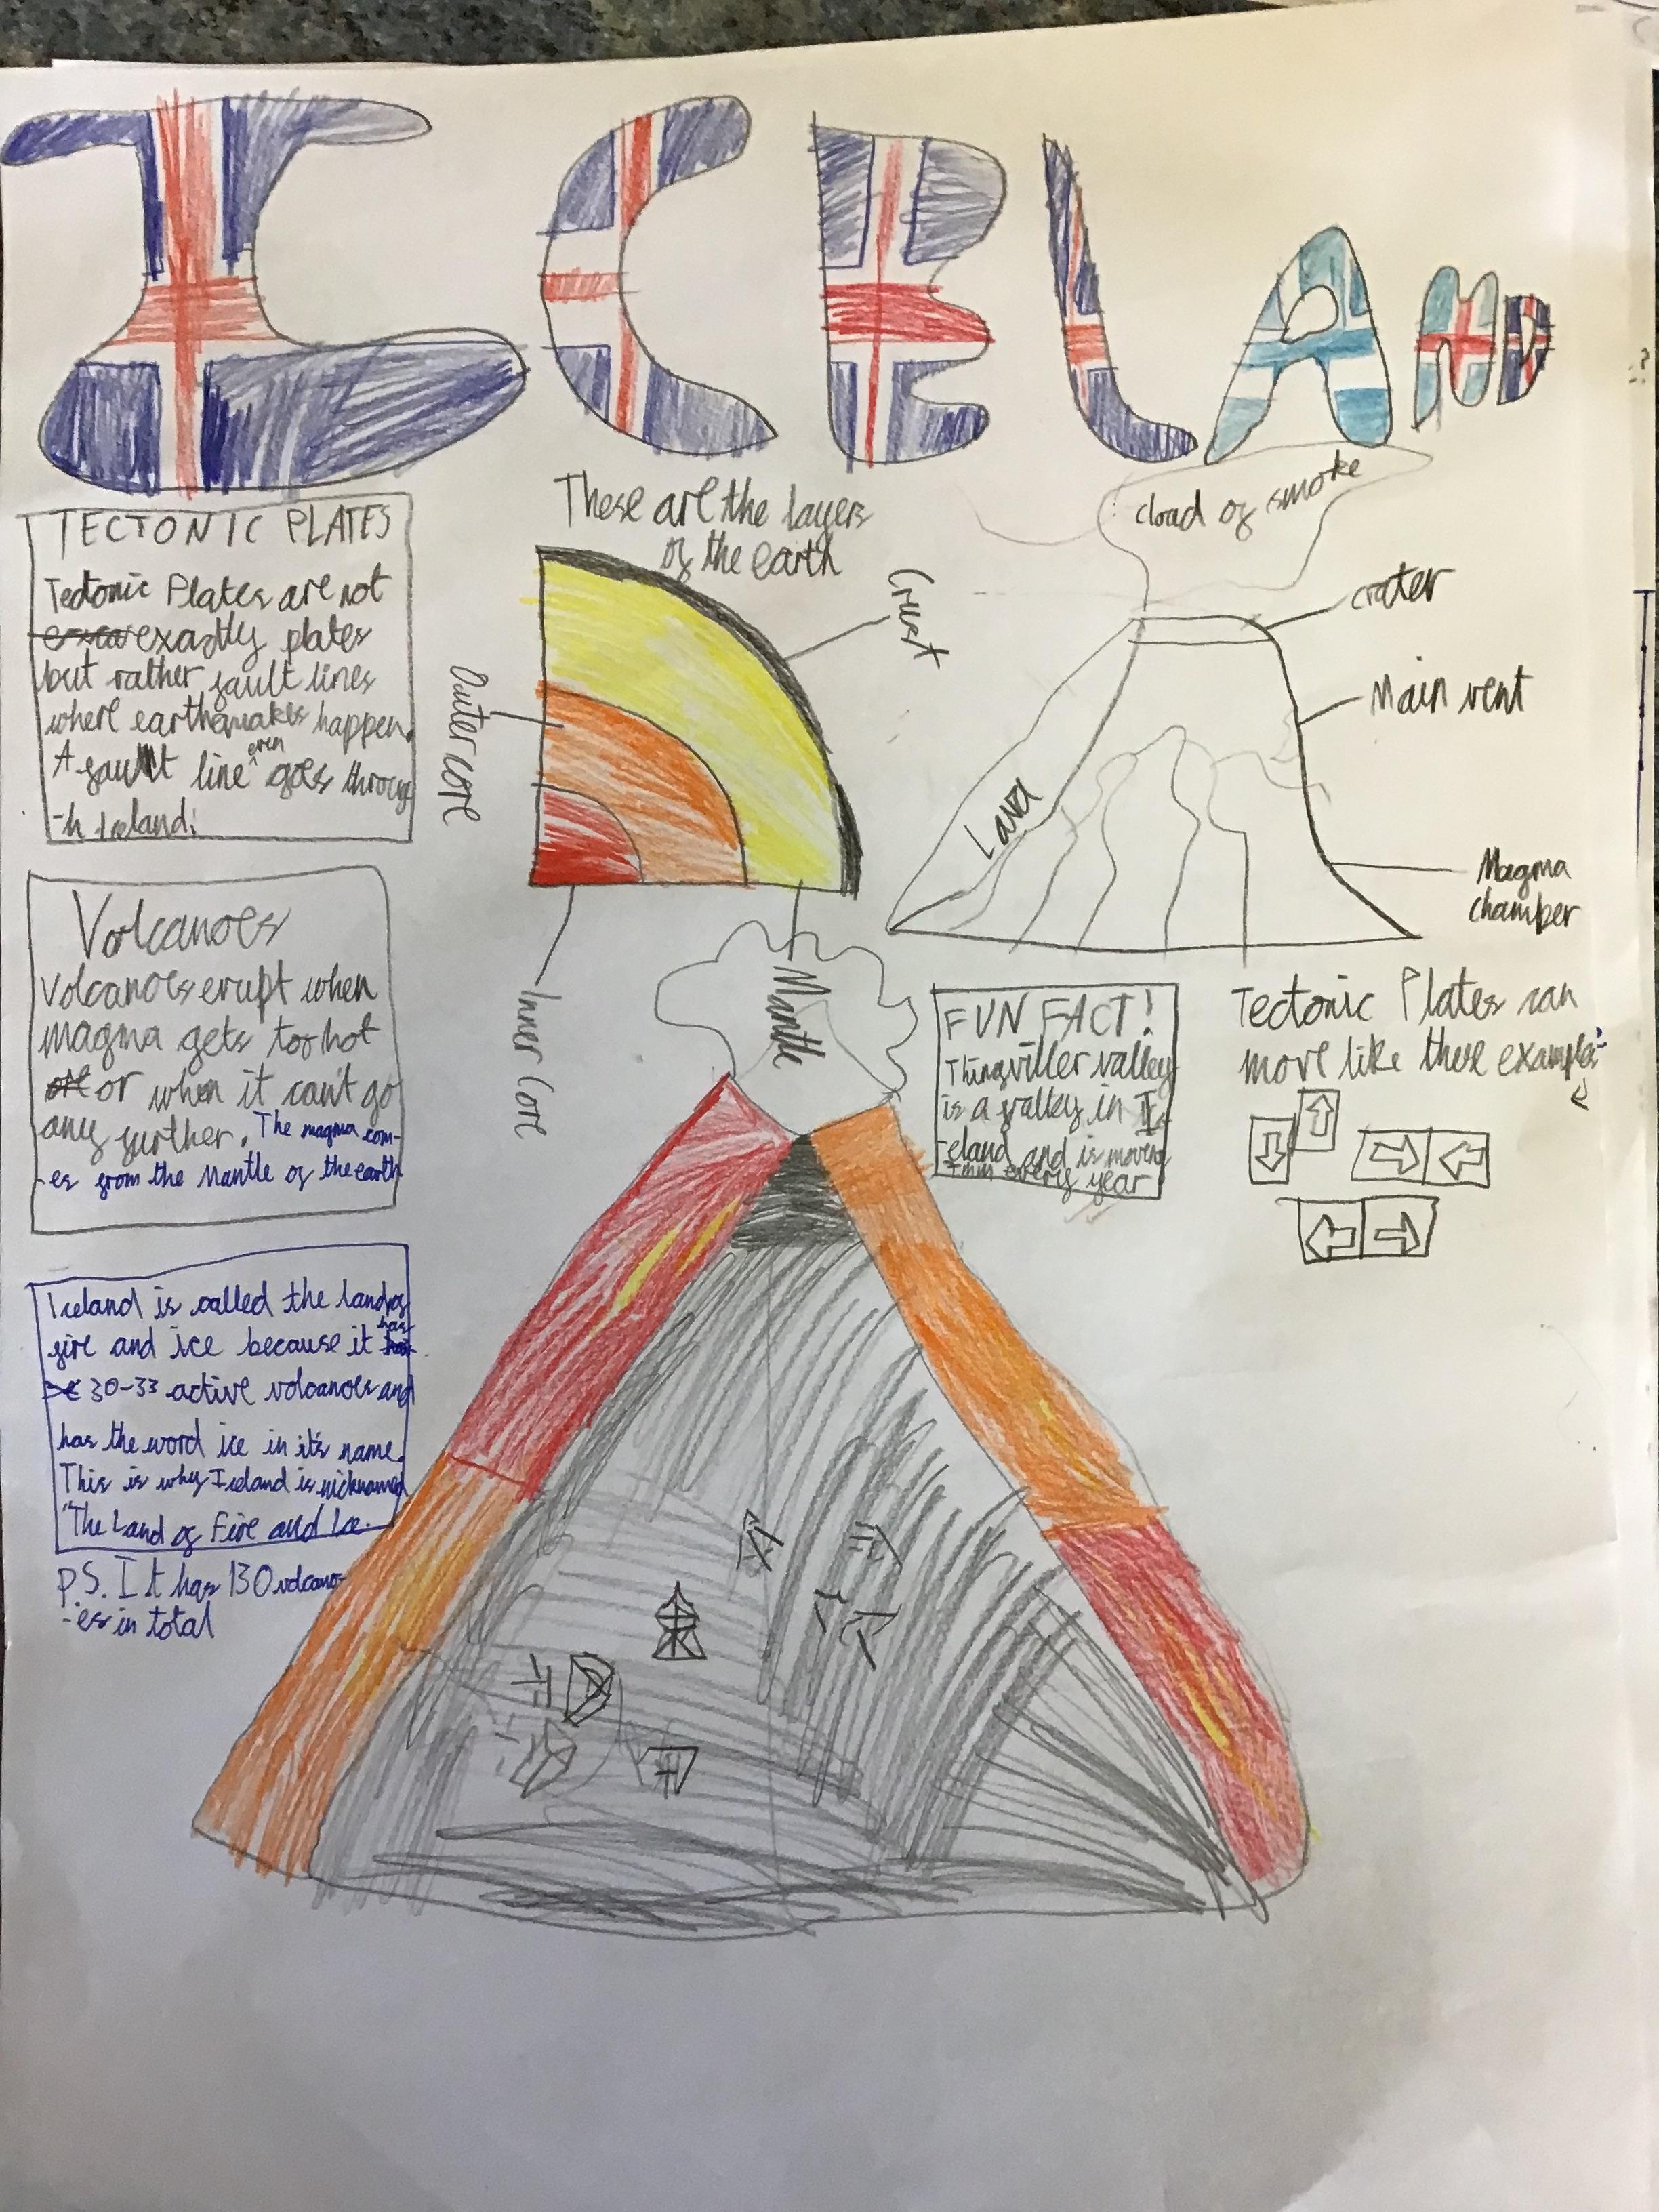 ICELAND
TECTONIC PLATES
Tectonic Plates are not
exactly plates
but rather fault lines
where earthquakes happen.
A fault line even goes throug
-h Iceland.
Volcanoes
Volcanoes erupt when
magma gets too hot
or when it can't go
any further. The magma com-
-es from the Mantle of the earth
Iceland is called the land of
fire and ice because it has
30-33 active volcanoes and
has the word ice in it's name.
This is why Iceland is nicknamed
"The Land of Fire and Ice.
P.S. It has 130 volcano
-es in total
These are the layers
of the earth
Crust
Outer core
Inner Core
Mantle
cload of smoke
crater
Main vent
Lava
Magma
chamber
FUN FACT!
Thingviller valley
is a valley in I
-celand and is moveng
every year
Tectonic Plates can
move like these examples: